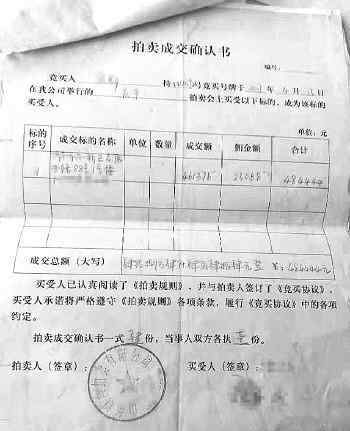 拍卖成交确认书
编号:
竞买人 持 号竞买号牌于 年 月 日
在我公司举行的 拍卖会上买受以下标的,成为该标的
买受人。
单位:元
标的序号 成交标的名称 单位 数量 成交额 佣金额 合计
461375 23068 484444
成交总额(大写) 肆拾捌万肆仟肆佰肆拾肆元整 ¥:484444元
买受人已认真阅读了《拍卖规则》,并与拍卖人签订了《竞买协议》,
买受人承诺将严格遵守《拍卖规则》各项条款,履行《竞买协议》中的各项
约定。
拍卖成交确认书一式肆份,当事人双方各执壹份。
拍卖人(签章): 买受人(签章):